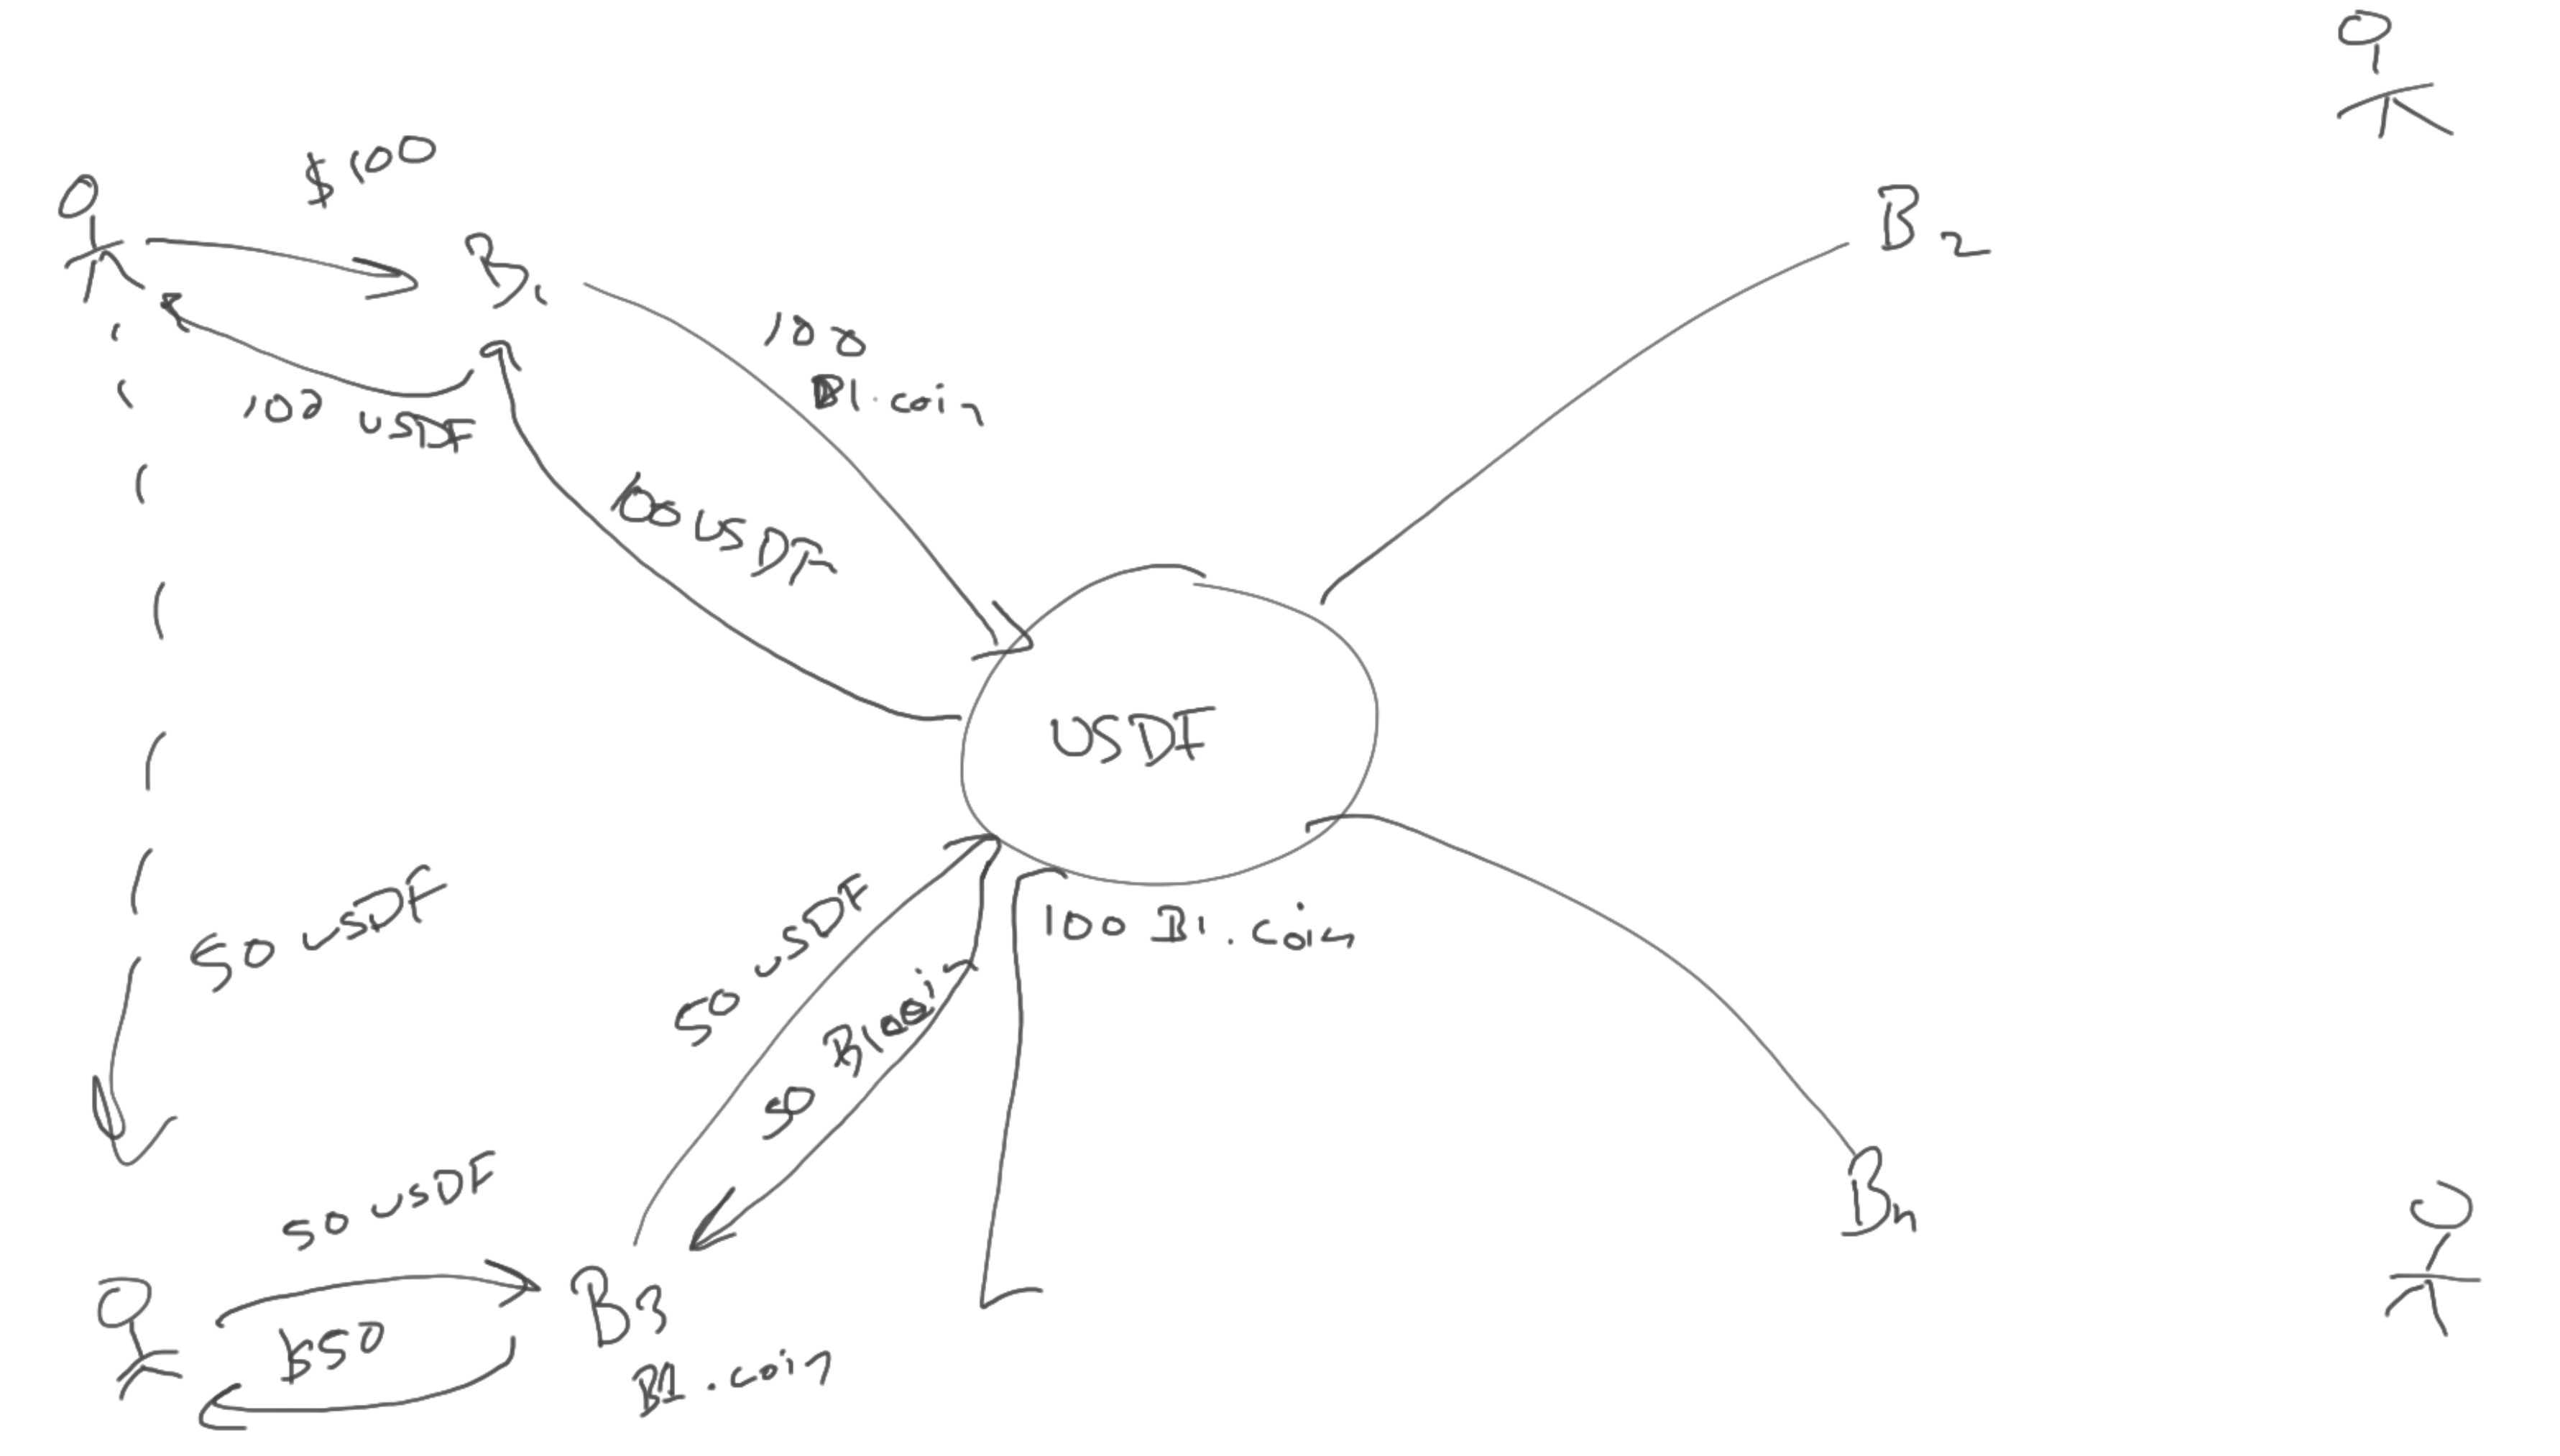 $100
B1
B2
100
B1.coin
100 USDF
100 USDF
USDF
50 USDF
50 USDF
100 B1.coin
50 B1coin
50 USDF
Bn
$50
B3
B1.coin